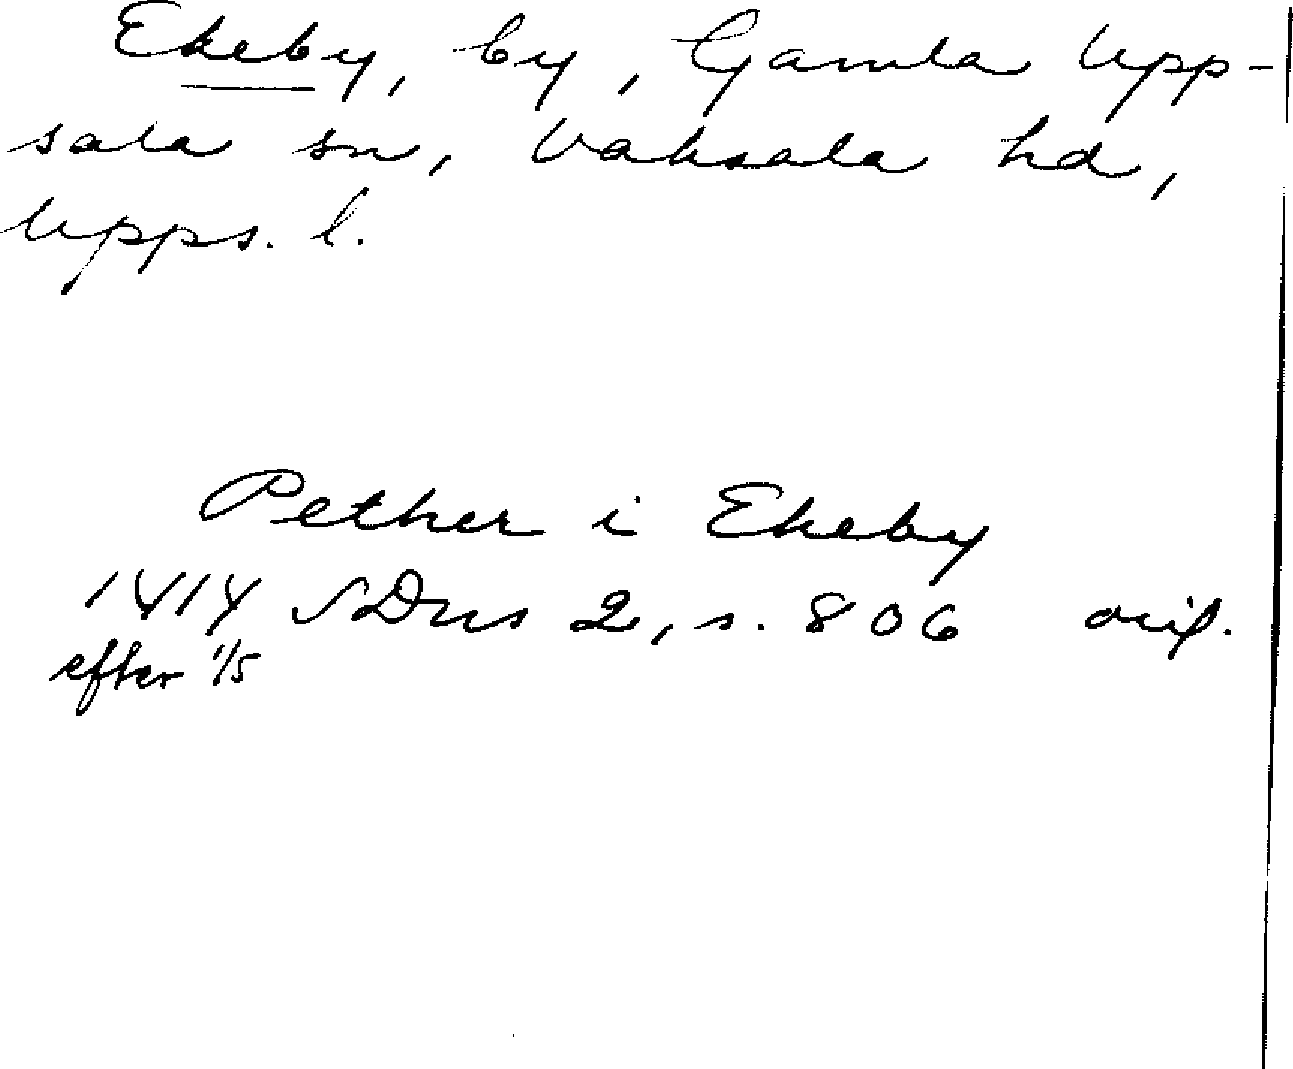 Ekeby, by, Gamla Upp-
sala sn, Vaksala hd,
Upps. l.
Pether i Ekeby
1414 SDns 2, s. 806 orig.
efter 1/5